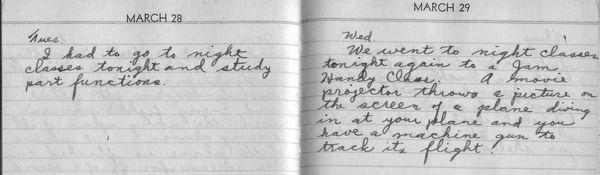 MARCH 28
Tues.
I had to go to night
classes tonight and study
part functions.
MARCH 29
Wed.
We went to night classes
tonight again to a Jam
Handy Class. A movie
projector throws a picture on
the screen of a plane diving
in at your plane and you
have a machine gun to
track its flight.